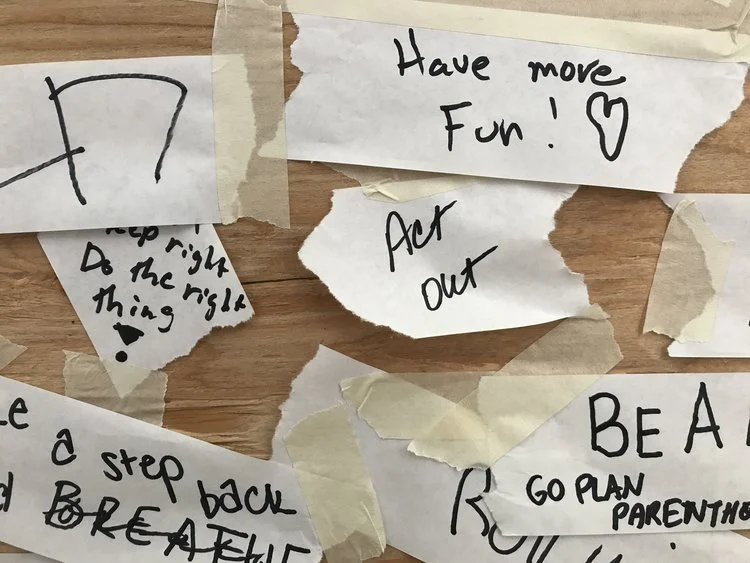 Have more
Fun!
Act
out
right
Do the right
thing right
a step back
BREATHE
BE A
GO PLAN
PARENTHO